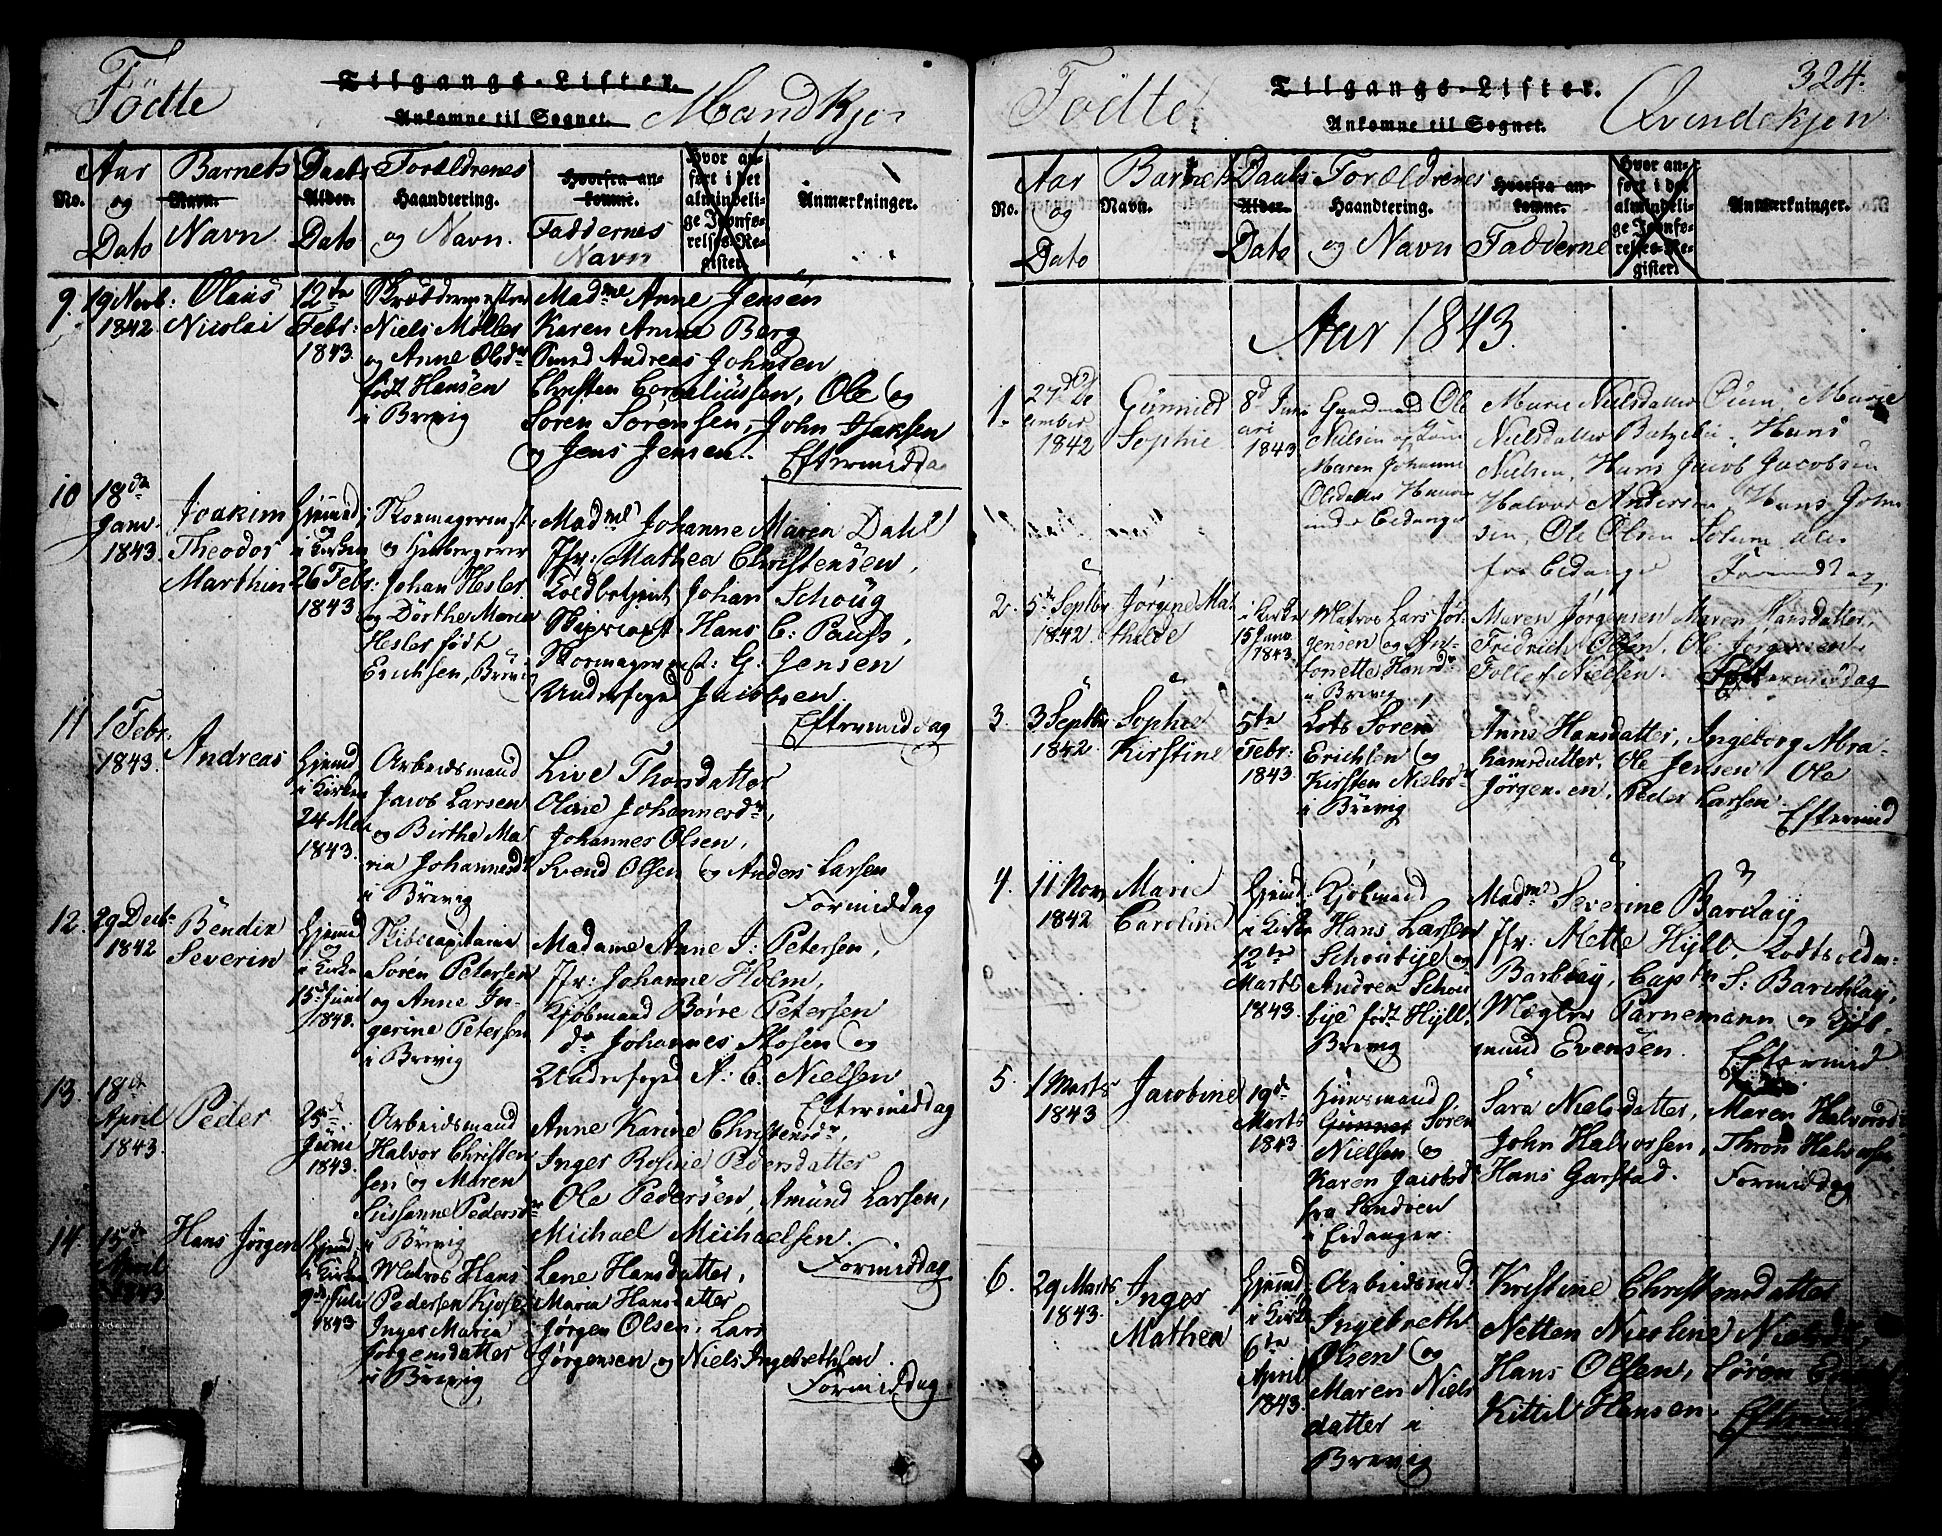 Födte
Tilgangs-Lister.
Ankomne til Sognet.
Mandkjøn
No.
Aar og Dato
Barnets Navn. Navn
Daabs Alder. Dato
Forældrenes Haandtering. og Navn.
Hvorfra ankomne. Faddernes Navn
Hvor anført i det almindelige Jevnførelses-Register.
Anmærkninger.
9. 19 Novb: 1842
Olaus Nicolai
12te Febr: 1843
Niels Möller
og Anne Olsdr
född Hansen
i Brevig
Madme Anne Jensen
Karen Anne Berg
Svend Andreas Johnsen
Christen Corneliussen, Ole og
Sören Sörensen, John Isaksen
og Jens Jensen.
Eftermiddag
10 18de Janv. 1843.
Joakim
Theodor
Marthin
Hjemmed
og
i Kirken
26 Febr:
1843.
Skomagermest
og
Johan Hesler
og Dorthe Marie
Hesler födt
Erichsen, Brevig
Madme Johanne Maren Dahl
Jfr: Mathea Christensen,
Toldbetjent Johan Schoug
Hans C: Pauss,
Skomagermest: G: Jensen
Underfoged Jacobsen.
Eftermiddag
11 1 Febr. 1843.
Andreas
Hjemmd
i Kirken
24 Mai
1843.
Arbeidsmand
Jacob Larsen
og Birthe Ma
ria Johannesdr
i Brevig
Live Thorsdatter
Oline Johannesdr,
Johannes Olsen,
Svend Olsen og Anders Larsen
Formiddag
12. 29 Decb: 1842
Bendix
Severin
Hjemmd
og
i Kirke
15d Juni
1843.
Skibscapitain
Sören Petersen
og Anne In-
gerine Petersen
i Brevig
Madame Anne J: Petersen,
Jfr: Johanne Holm,
Kjöbmand Börre Petersen
do Johannes Stosen og
Underfoged N: C: Nielsen
Eftermiddag
13. 18de April 1843.
Peder
25de
Juni
1843.
Arbeidsmand
Halvor Christen
sen og Maren
Susanne Pedersdr
i Brevig
Anne Karine Christensdr,
Inger Rosine Pedersdatter
Ole Pedersen, Amund Larsen,
Michael Michaelsen.
Formiddag
14. 15de April 1843
Hans Jörgen
Hjemmd
i Kirken
9de Juli
1843
Matros Hans
Pedersen Kjose
Inger Maria
Jörgensdatter
i Brevig
Lene Hansdatter,
Maria Hansdatter
Jörgen Olsen, Lars
Jörgensen og Niels Ingebrethsen.
Formiddag
Födte
Tilgangs-Lister.
Ankomne til Sognet.
Qvindekjön
324.
No.
Aar og Dato
Barnets Navn.
Daabs Alder. Dato
Forældrenes Haandtering. og Navn
Hvorfra ankomne. Fadderne
Hvor anført i det almindelige Jevnførelses-Register.
Anmærkninger.
Aar 1843.
1. 27de
ember
1842
Gunnild
Sophie
8d Janu
ari
1843
Gaardmand Ole
Nielsen og Kone
Maren Johanne
Olsdatter
under Eidanger
Marie Nielsdatter Marie
Nielsdatter Hans
Nielsen, Hans Jacob Jacobsen
Halvor Andersen, Hans John
sen, Ole Olsen alle
fra Eidanger
Formiddag
2. 5te Septbr 1842.
Jörgine Ma
thilde
i Kirke
15 Janv.
1843.
Matros Lars Jör
gensen og An-
tonette Hansdr
i Brevig
Maren Jörgensen, Maren Hansdatter,
Fridrich Olsen, Ole Jörgensen.
Tollef Nielsen.
Eftermiddag
3. 3 Septbr 1842.
Sophie
Kirstine
5te
Febr:
1843.
Lots Sören
Erichsen og
Kirsten Nielsdr
i Brevig
Anne Hansdatter, Ingeborg Abra-
hamsdatter, Ole Jensen Ole
Jörgensen, Peder Larsen.
Eftermid
4. 11 Nov, 1842.
Marie
Caroline
Hjemmd
i Kirke
12te
Marts
1843.
Kjöbmand
Hans Larsen
Schoubye og
Andrea Schou
bye födt Hyll.
Brevig
Madme Severine Barclay
Jfr: Mette Hyll, Lodtsoldm:
Barclay, Captn S: Barchlay,
Mægler Parnemann og Kjöb-
mand Evensen.
Eftermid.
5. 1 Marts 1843
Jacobine
19de
Marts
1843
Huusmand
Gunner Sören
Nielsen og
Karen Jacobsd
fra Sandøen
i Eidanger.
Sara Nielsdatter, Maren Halvorsd
John Halvorsen, Thron Halvorsen
Hans Garstad.
Formiddag
6. 29 Marts 1843.
Inger
Mathea
Hjemmd
i Kirke
6te
April
1843.
Arbeidsmd.
Ingebreth
Olsen og
Maren Niels
datter i
Brevig
Kristine Christensdatter
Netten Nicoline Nielsdr
Hans Olsen, Sören
Kittil Hansen.
Eftermid